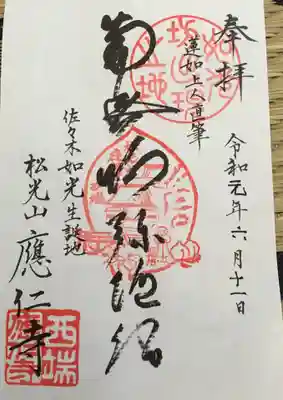 奉拝
令和元年六月十一日
蓮如上人直筆
南無阿弥陀佛
佐々木如光生誕地
松光山應仁寺
西端